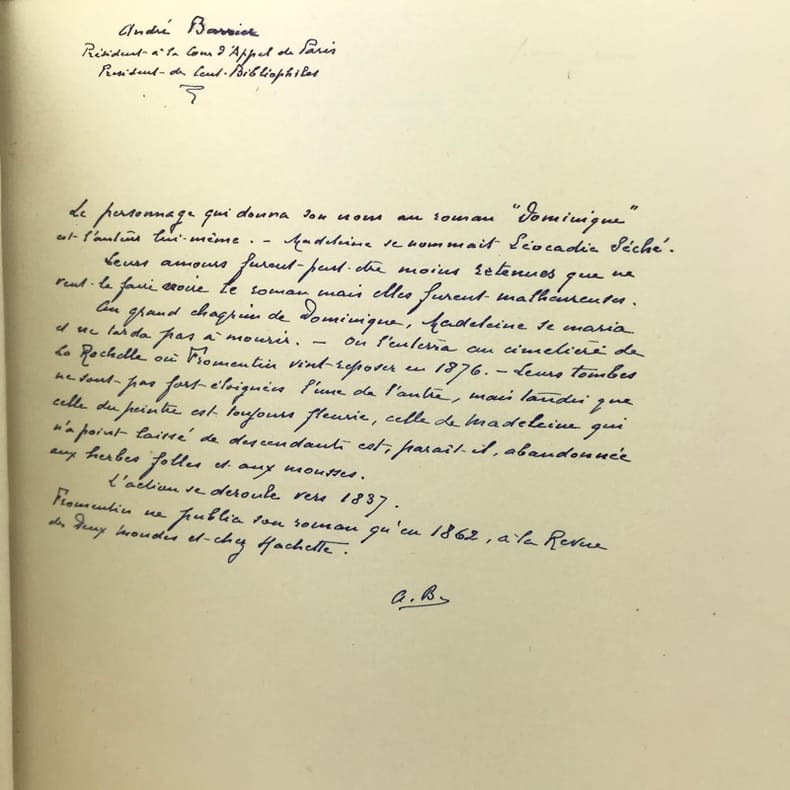 André Barrier
Président à la Cour d'Appel de Paris
Président des Cent-Bibliophiles
Le personnage qui donna son nom au roman "Dominique"
est l'auteur lui-même. — Madeleine se nommait Léocadie Séché.
Leurs amours furent peut-être moins retenues que ne
veut le faire croire le roman mais elles furent malheureuses.
Au grand chagrin de Dominique, Madeleine se maria
et ne tarda pas à mourir. — On l'enterra au cimetière de
La Rochelle où Fromentin vint reposer en 1876. — Leurs tombes
ne sont pas fort éloignées l'une de l'autre, mais tandis que
celle du peintre est toujours fleurie, celle de Madeleine qui
n'a point laissé de descendants est, paraît-il, abandonnée
aux herbes folles et aux mousses.
L'action se déroule vers 1837.
Fromentin ne publia son roman qu'en 1862, à la Revue
des Deux Mondes et chez Hachette.
A. B.